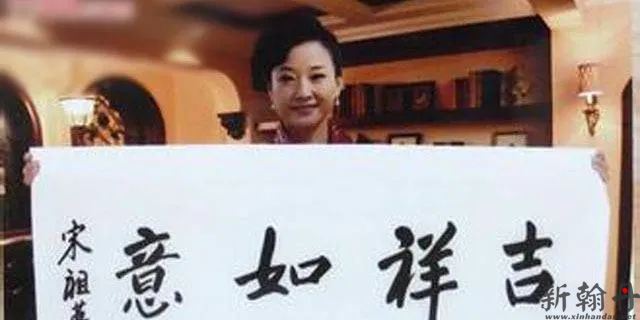 吉祥如意
宋祖英
新翰丹
www.xinhandan.net